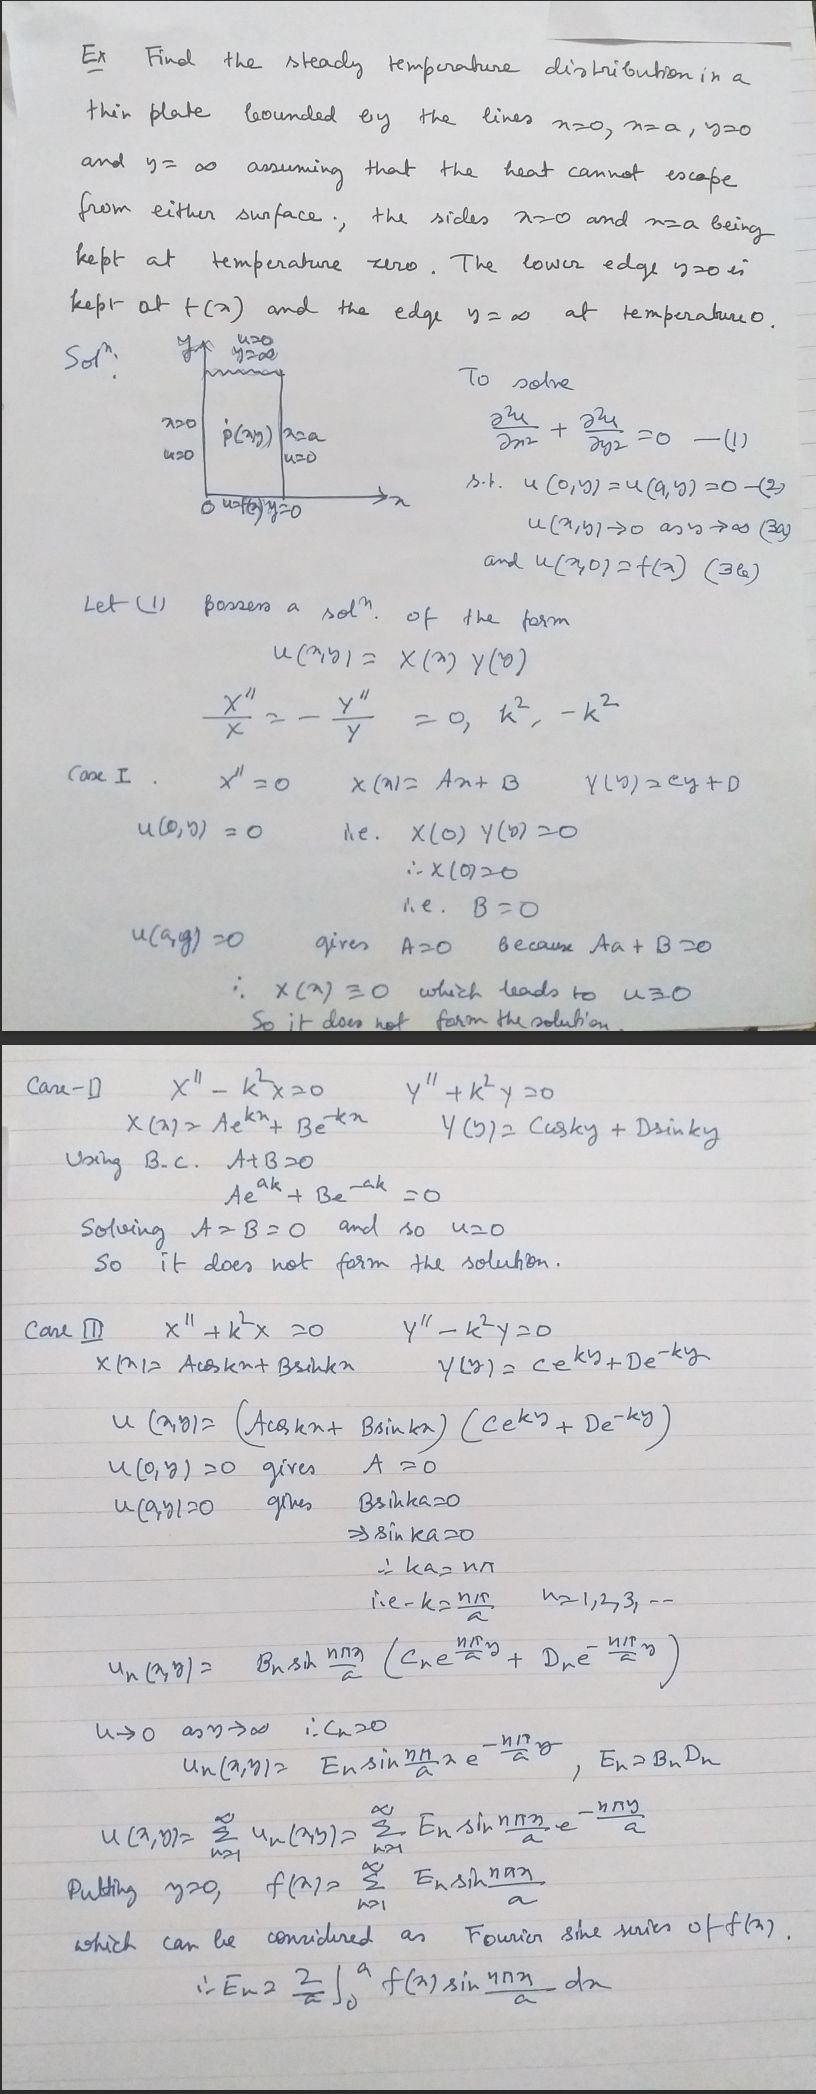 Ex Find the steady temperature distribution in a
thin plate bounded by the lines x=0, x=a, y=0
and y=∞ assuming that the heat cannot escape
from either surface., the sides x=0 and x=a being
kept at temperature zero. The lower edge y=0 is
kept at f(x) and the edge y=∞ at temperature 0.
Solⁿ:
y u=0
y=∞
x=0 p(x,y) x=a
u=0 u=0
0 u=f(x) y=0 x
To solve
∂²u/∂x² + ∂²u/∂y² = 0 —(1)
s.t. u(0,y)=u(a,y)=0 —(2)
u(x,y)→0 as y→∞ (3a)
and u(x,0)=f(x) (3b)
Let (1) possess a solⁿ. of the form
u(x,y) = X(x) Y(y)
X''/X = - Y''/Y = 0, k², -k²
Case I. X''=0 X(x)= Ax+B Y(y)=cy+D
u(0,y) = 0 i.e. X(0) Y(y)=0
∴ X(0)=0
i.e. B=0
u(a,y)=0 gives A=0 because Aa+B=0
∴ X(x)≡0 which leads to u≡0
So it does not form the solution.
Case-II X''-k²X=0 Y''+k²Y=0
X(x)= Ae^{kx}+Be^{-kx} Y(y)= Ccosky + Dsinky
Using B.C. A+B=0
Ae^{ak}+Be^{-ak}=0
Solving A=B=0 and so u=0
So it does not form the solution.
Case III X''+k²X=0 Y''-k²Y=0
X(x)= Acoskx+Bsinkx Y(y)= Ce^{ky}+De^{-ky}
u(x,y)= (Acoskx+Bsinkx) (Ce^{ky}+De^{-ky})
u(0,y)=0 gives A=0
u(a,y)=0 gives Bsinka=0
⇒ sin ka=0
∴ ka=nπ
i.e-k=nπ/a n=1,2,3,--
uₙ(x,y)= Bₙ sin nπx/a (Cₙe^{nπ/a y}+Dₙe^{-nπ/a y})
u→0 as y→∞ ∴Cₙ=0
uₙ(x,y)= Eₙ sin nπ/a x e^{-nπ/a y}, Eₙ=BₙDₙ
u(x,y)= ∑_{n=1}^{∞} uₙ(x,y)= ∑_{n=1}^{∞} Eₙ sin nπx/a e^{-nπy/a}
Putting y=0, f(x)= ∑_{n=1}^{∞} Eₙ sin nπx/a
which can be considered as Fourier sine series of f(x).
∴ Eₙ = 2/a ∫₀^a f(x) sin nπx/a dx